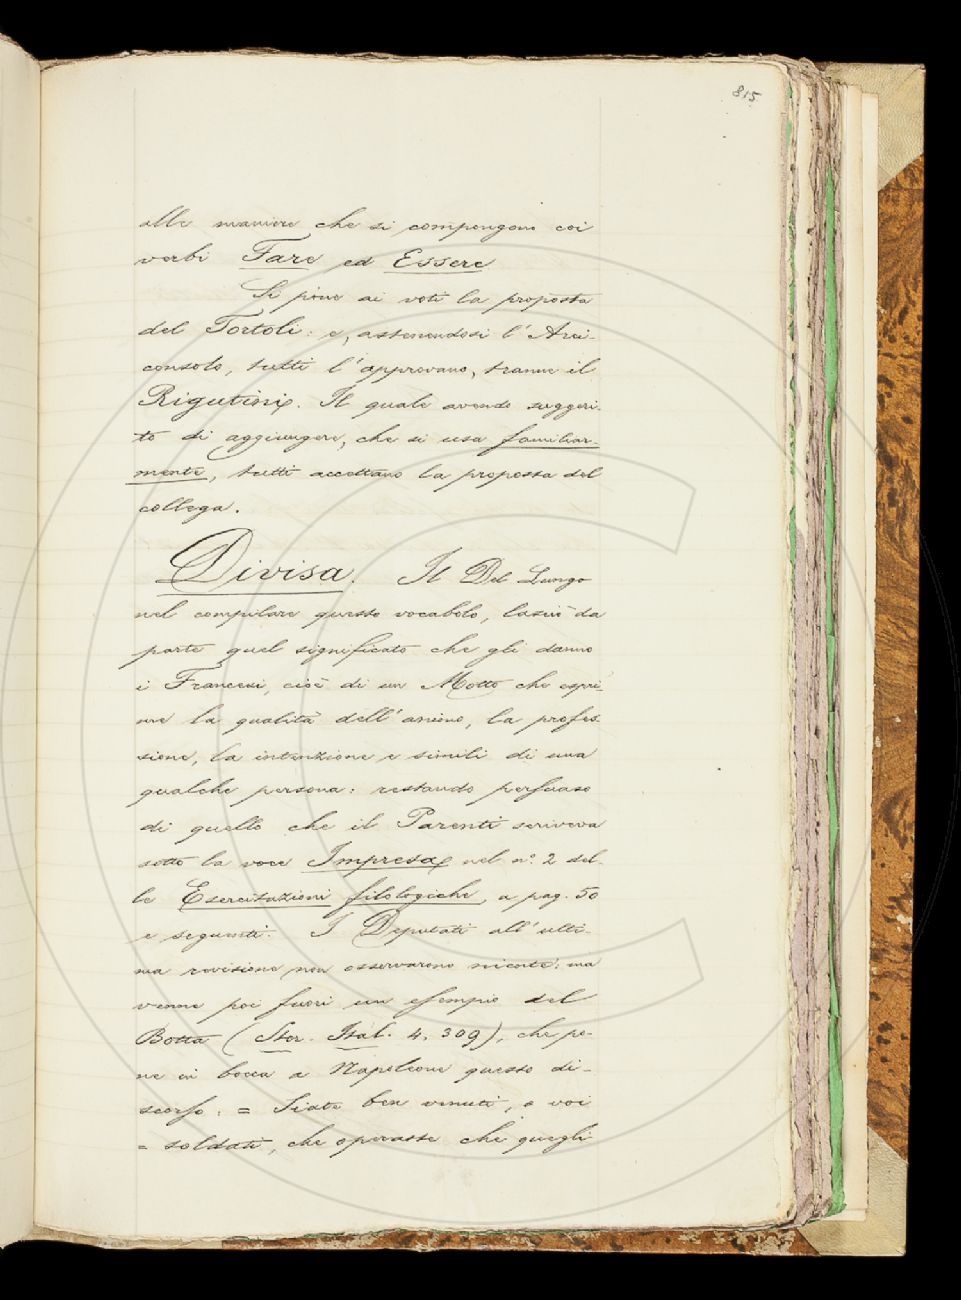 815
alle maniere che si compongono coi
verbi Fare ed Essere
Si pone ai voti la proposta
del Tortoli: e, astenendosi l'Arci-
consolo, tutti l'approvano, tranne il
Rigutini. Il quale avendo suggeri-
to di aggiungere, che si usa familiar-
mente, tutti accettano la proposta del
collega.
Divisa. Il Del Lungo
nel compilare questo vocabolo, lasciò da
parte quel significato che gli danno
i Francesi, cioè di un Motto che espri-
me la qualità dell'animo, la profes-
sione, la intenzione e simili di una
qualche persona: restando persuaso
di quello che il Parenti scriveva
sotto la voce Impresa nel n.º 2 del-
le Esercitazioni filologiche, a pag. 50
e seguenti. I Deputati all'ulti-
ma revisione non osservarono niente: ma
venne poi fuori un esempio del
Botta (Stor. Ital. 4, 309), che po-
ne in bocca a Napoleone questo di-
scorso: = Siate ben venuti, o voi
= soldati, che operaste che quegli